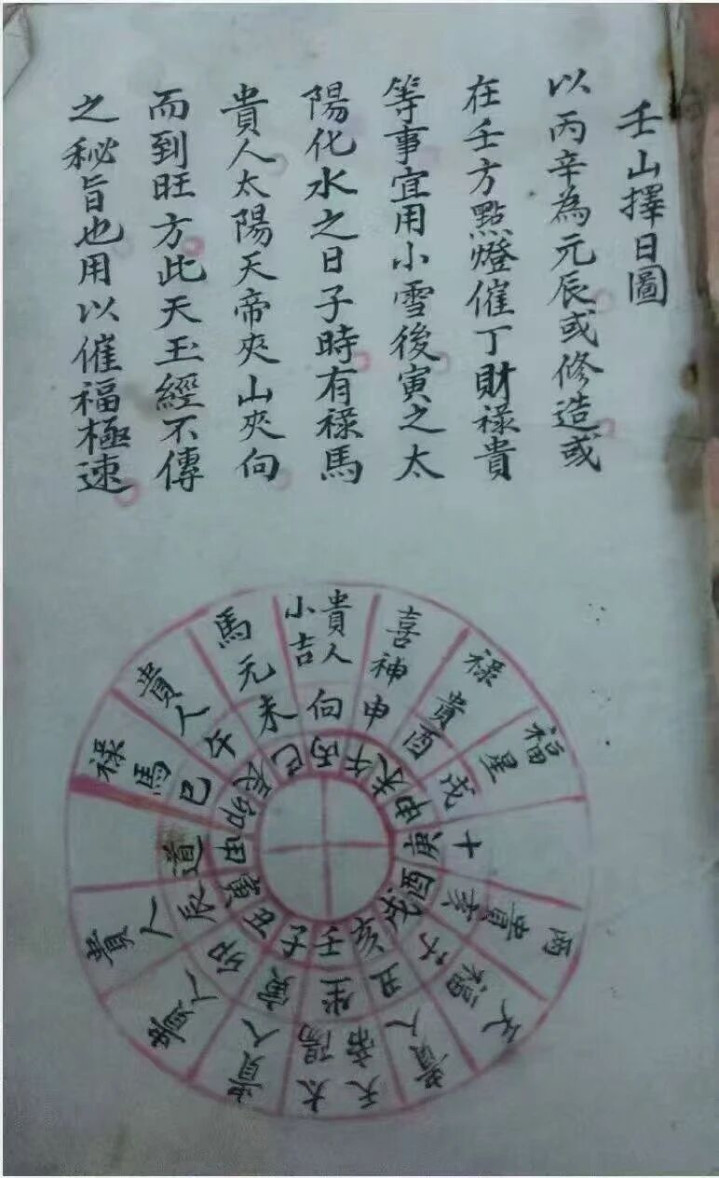 壬山擇日圖
以丙辛為元辰或修造或
在壬方點燈催丁財祿貴
等事宜用小雪後寅之太
陽化水之日子時有祿馬
貴人太陽天帝夾山夾向
而到旺方此天玉經不傳
之秘旨也用以催福極速
貴人
小吉
向
丙
喜神
申
午
祿貴
酉
未
福星
戌
申
十
庚
貴
亥
酉
戌
貴人
丑
亥
天帝
太陽
坐
壬
貴人
寅
子
貴人
卯
丑
貴人
辰
寅
道
甲
祿馬
巳
卯
貴人
午
辰
馬元
未
巳